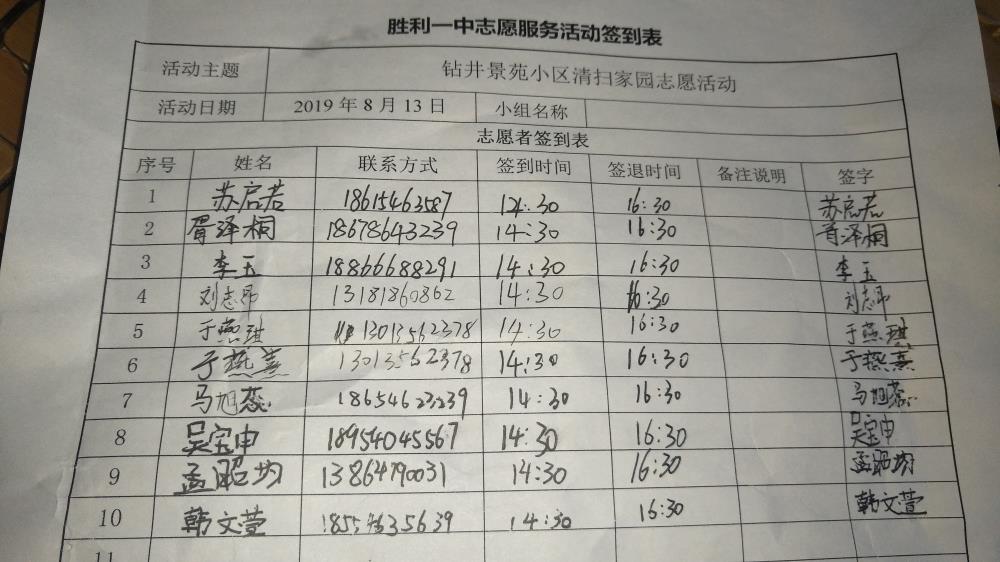 胜利一中志愿服务活动签到表
活动主题 钻井景苑小区清扫家园志愿活动
活动日期 2019年8月13日 小组名称
志愿者签到表
序号 姓名 联系方式 签到时间 签退时间 备注说明 签字
1 苏启若 18615463587 14:30 16:30 苏启若
2 胥泽桐 18678643239 14:30 16:30 胥泽桐
3 李玉 18866688291 14:30 16:30 李玉
4 刘志昂 13181860862 14:30 16:30 刘志昂
5 于燕琪 13013562378 14:30 16:30 于燕琪
6 于燕熹 13013562378 14:30 16:30 于燕熹
7 马旭蕊 18654623239 14:30 16:30 马旭蕊
8 吴宝申 18954045567 14:30 16:30 吴宝申
9 孟昭均 13864790031 14:30 16:30 孟昭均
10 韩文萱 14:30 16:30 韩文萱
11